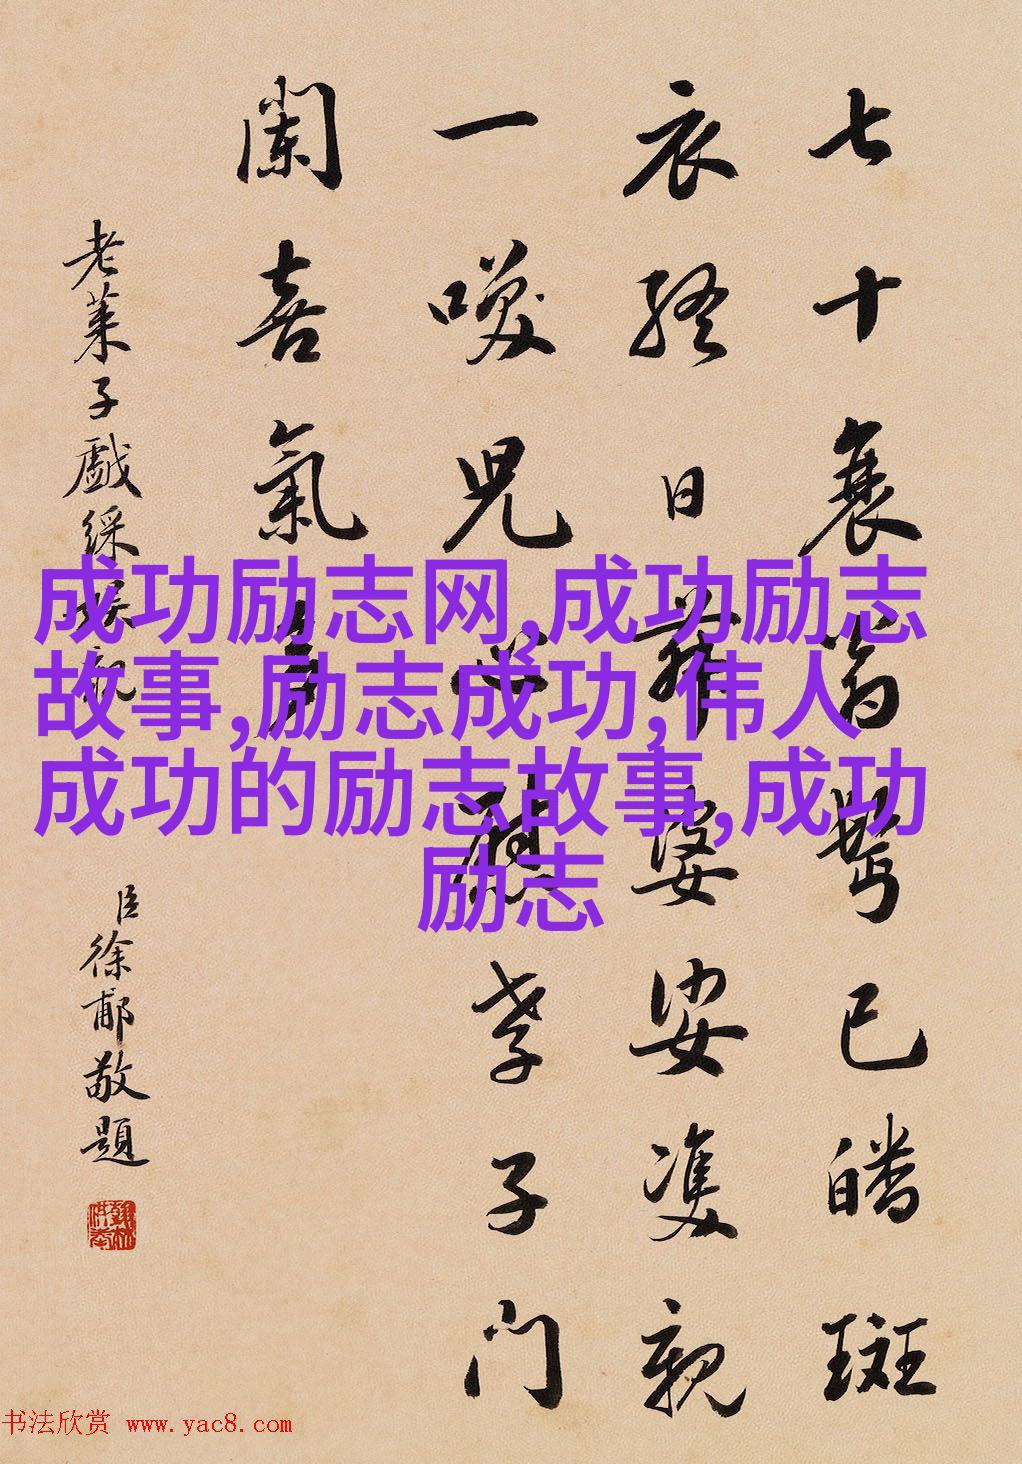 七十衰翁鬢已皤斑
衣終日舞婆娑雙親
一咲兒心慰孝子门
闌喜氣多
老萊子戲綵娛親
臣徐郙敬題
成功励志网,成功励志
故事,励志成功,伟人
成功的励志故事,成功
励志
书法欣赏 www.yac8.com